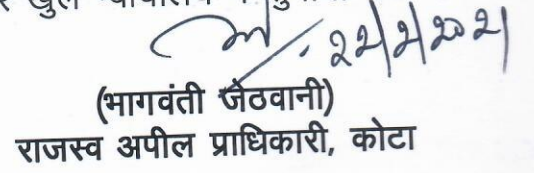 खुले न्यायालय
22/2/2021
(भागवंती जेठवानी)
राजस्व अपील प्राधिकारी, कोटा